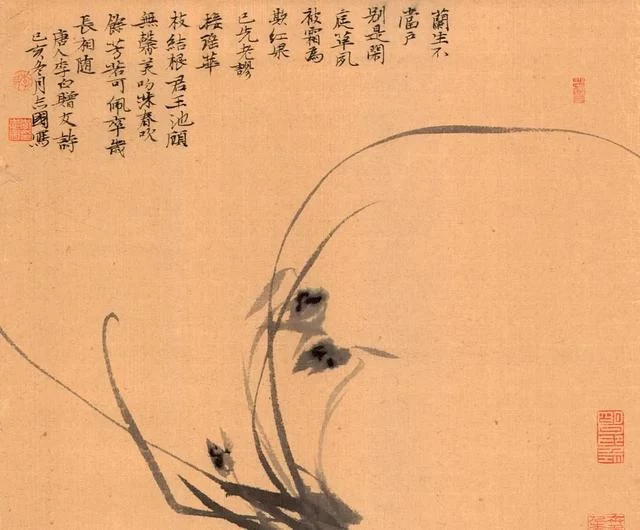 蘭生不
當戶
別是閑
庭草夙
被霜為
欺紅
已先老謬
接瑤華
枝結根君王池顧
無馨美叨沐春吹
餘芳若可佩卒歲
長相隨
唐人李白贈友詩
己亥冬月志國寫